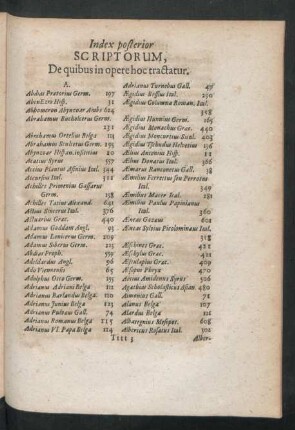 Index posterior
SCRIPTORUM,
De quibus in opere hoc tractatur.
A.
Abdias Pratorius Germ. 197
AbenEzra Hisp. 31
Abhomeron Abynzoar Arabs 604
Abrahamus Bucholcerus Germ.
231
Abrahamus Ortelius Belga
Abrahamus Germ. 195
Abynzoar Hispan. 20
Acatius Syrus 557
Accius Plautus Asinius Ital. 544
Accursius Ital. 321
Achilles Pirminius Gassarus
Germ. 158
Achilles Tatius Alexand. 601
Actius Sincerus Ital. 360
Actuarius Græc. 440
Adamus Goddam Angl. 93
Adamus Lonicerus Germ.
Adamus Siberus Germ.
Abdias Proph. 559
Adelardus Angl. 96
Ado Viennensis 65
Adolphus Occo Germ.
Adrianus Adriani Belga 121
Adrianus Barlandus Belga
Adrianus Junius Belga 125
Adrianus Pulvæi Gall. 74
Adrianus Romanus Belga 115
Adrianus VI. Papa Belga 114
Adrianus Turnebus Gall. 49
Ægidius Bossius Ital. 250
Ægidius Columna Roman. Ital.
352
Ægidius Hunnius Germ. 165
Ægidius Monachus Græc. 440
Ægidius Ital. 405
Ægidius Tschudus Helvetius 196
Ælius Antonius Hisp. 11
Ælius Donatus Ital. 386
Æmarus Ranconetus Gall. 38
Æmilius Ferrettus seu Ferretus
Ital.
Æmilius Macer Ital. 181
Æmilius Paulus Papinianus
Ital.
Æneas Gazæus 601
Æneas Sylvius Picolomineus Ital.
318
Æschines Græc. 441
Æschylus Græc. 441
Æsculapius Græc. 441
Æsopus Phryx 470
Aetius Amidenus Syrus 506
Agathias Scholasticus Asian. 480
Aimonius Gall. 71
Alanus Belga 107
Alardus Belga 121
Albategnius Mesopot. 608
Albericus Rosatus Ital. 302
Tttt 3 Alber-